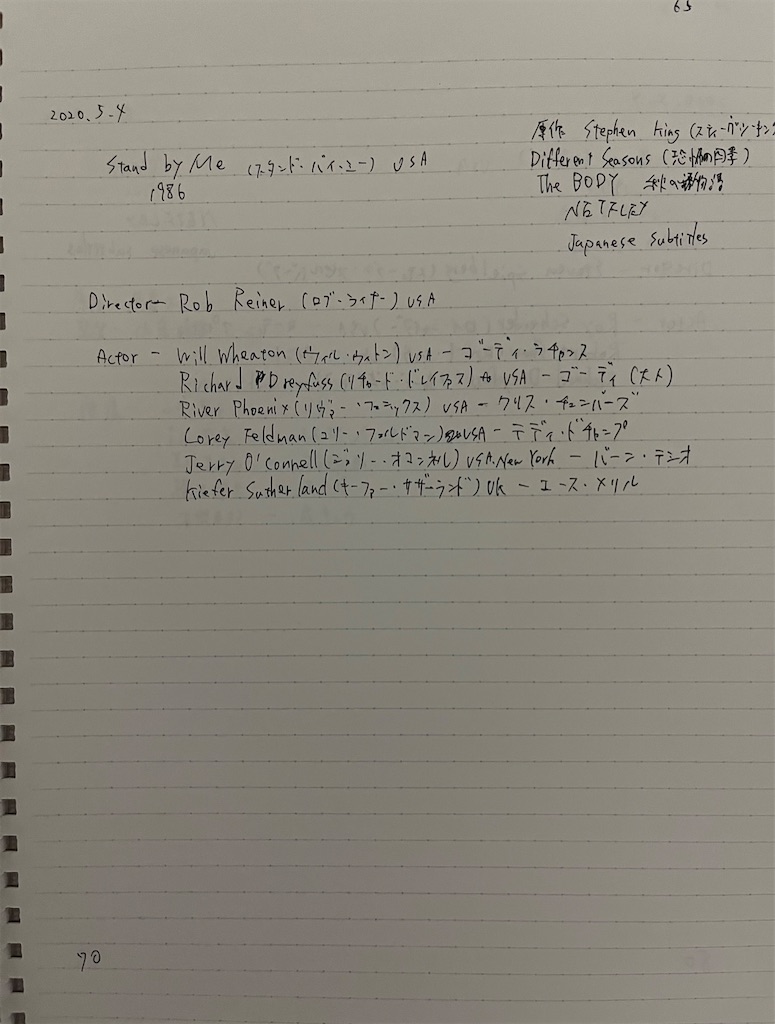 65
2020.5.4
原作 Stephen King (スティーヴン・キング
Stand by Me (スタンド・バイ・ミー) USA
Different Seasons (恐怖の四季)
1986
The BODY 秋の物語
NETFLEY
Japanese Subtitles
Director - Rob Reiner (ロブ・ライナー) USA
Actor - Will Wheaton (ウィル・ウィトン) USA - ゴーディ・ラチャンス
Richard Dreyfuss (リチャード・ドレイファス) USA - ゴーディ (大人)
River Phoenix (リヴァー・フェニックス) USA - クリス・チェンバーズ
Corey Feldman (コリー・フェルドマン) USA - テディ・ドチャンプ
Jerry O'Connell (ジェリー・オコンネル) USA.New York - バーン・テシオ
Kiefer Sutherland (キーファー・サザーランド) UK - エース・メリル
70